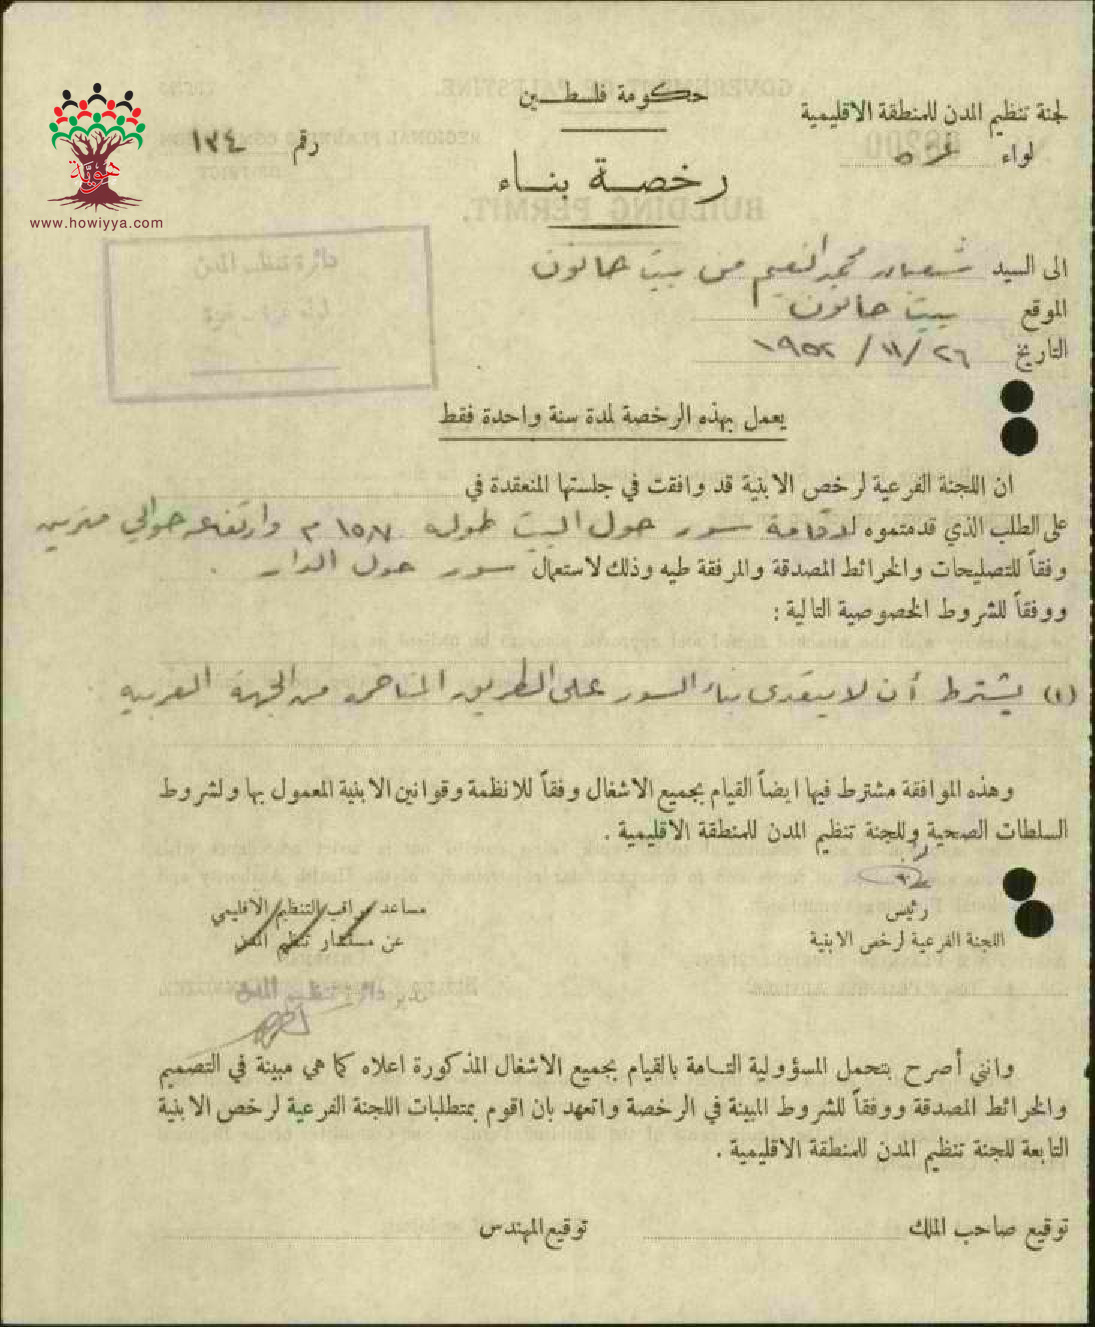 حكومة فلسطين
لجنة تنظيم المدن للمنطقة الاقليمية
لواء غزه
رقم ١٣٤
هوية
www.howiyya.com
رخصة بناء
دائرة تنظيم المدن
الى السيد شعبان محمد النعيم من بيت حانون
الموقع بيت حانون
التاريخ ٢٦ / ١١ / ١٩٥٢
يعمل بهذه الرخصة لمدة سنة واحدة فقط
ان اللجنة الفرعية لرخص الابنية قد وافقت في جلستها المنعقدة في
على الطلب الذي قدمتموه لاقامة سور حول البيت طوله م وارتفاعه حوالي مترين
وفقاً للتصليحات والخرائط المصدقة والمرفقة طيه وذلك لاستعمال سور حول الدار .
ووفقاً للشروط الخصوصية التالية :
(١) يشترط أن لا يتعدى بناء السور على الطريق المتاخم من الجهه الغربيه
وهذه الموافقة مشترط فيها ايضاً القيام بجميع الاشغال وفقاً للانظمة وقوانين الابنية المعمول بها ولشروط
السلطات الصحية وللجنة تنظيم المدن للمنطقة الاقليمية .
رئيس
اللجنة الفرعية لرخص الابنية
مساعد مراقب التنظيم الاقليمي
عن مستشار تنظيم المدن
مدير دائرة تنظيم المدن
وانني أصرح بتحمل المسؤولية التامة بالقيام بجميع الاشغال المذكورة اعلاه كما هي مبينة في التصميم
والخرائط المصدقة ووفقاً للشروط المبينة في الرخصة واتعهد بان اقوم بمتطلبات اللجنة الفرعية لرخص الابنية
التابعة للجنة تنظيم المدن للمنطقة الاقليمية .
توقيع صاحب الملك
توقيع المهندس